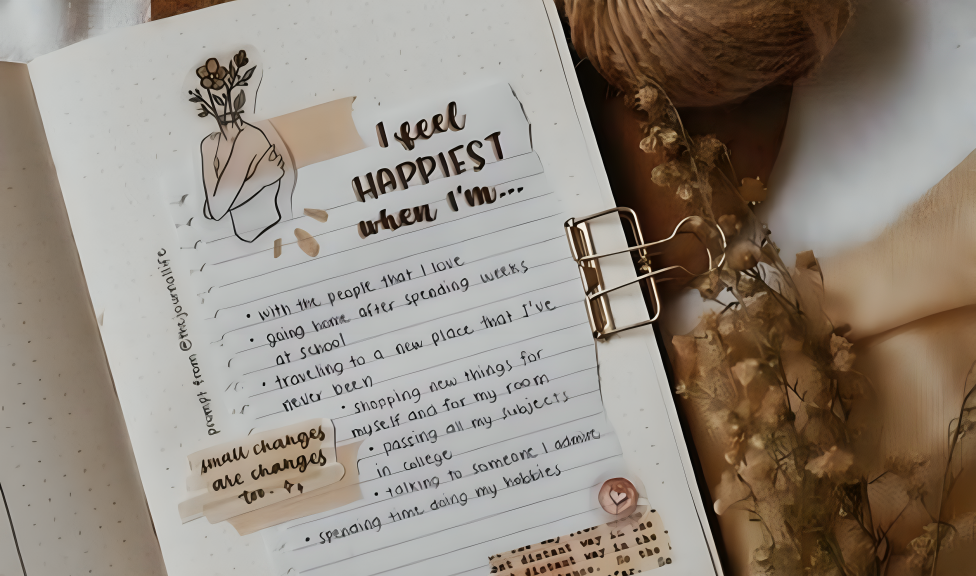 I feel
HAPPIEST
when I'm...
• with the people that I love
• going home after spending weeks
at school
• traveling to a new place that I've
never been
• shopping new things for
myself and for my room
• passing all my subjects
in college
• talking to someone I admire
• spending time doing my hobbies
prompt from @thejournallife
small changes
are changes
too.
distant way in the
distant way in the
So the